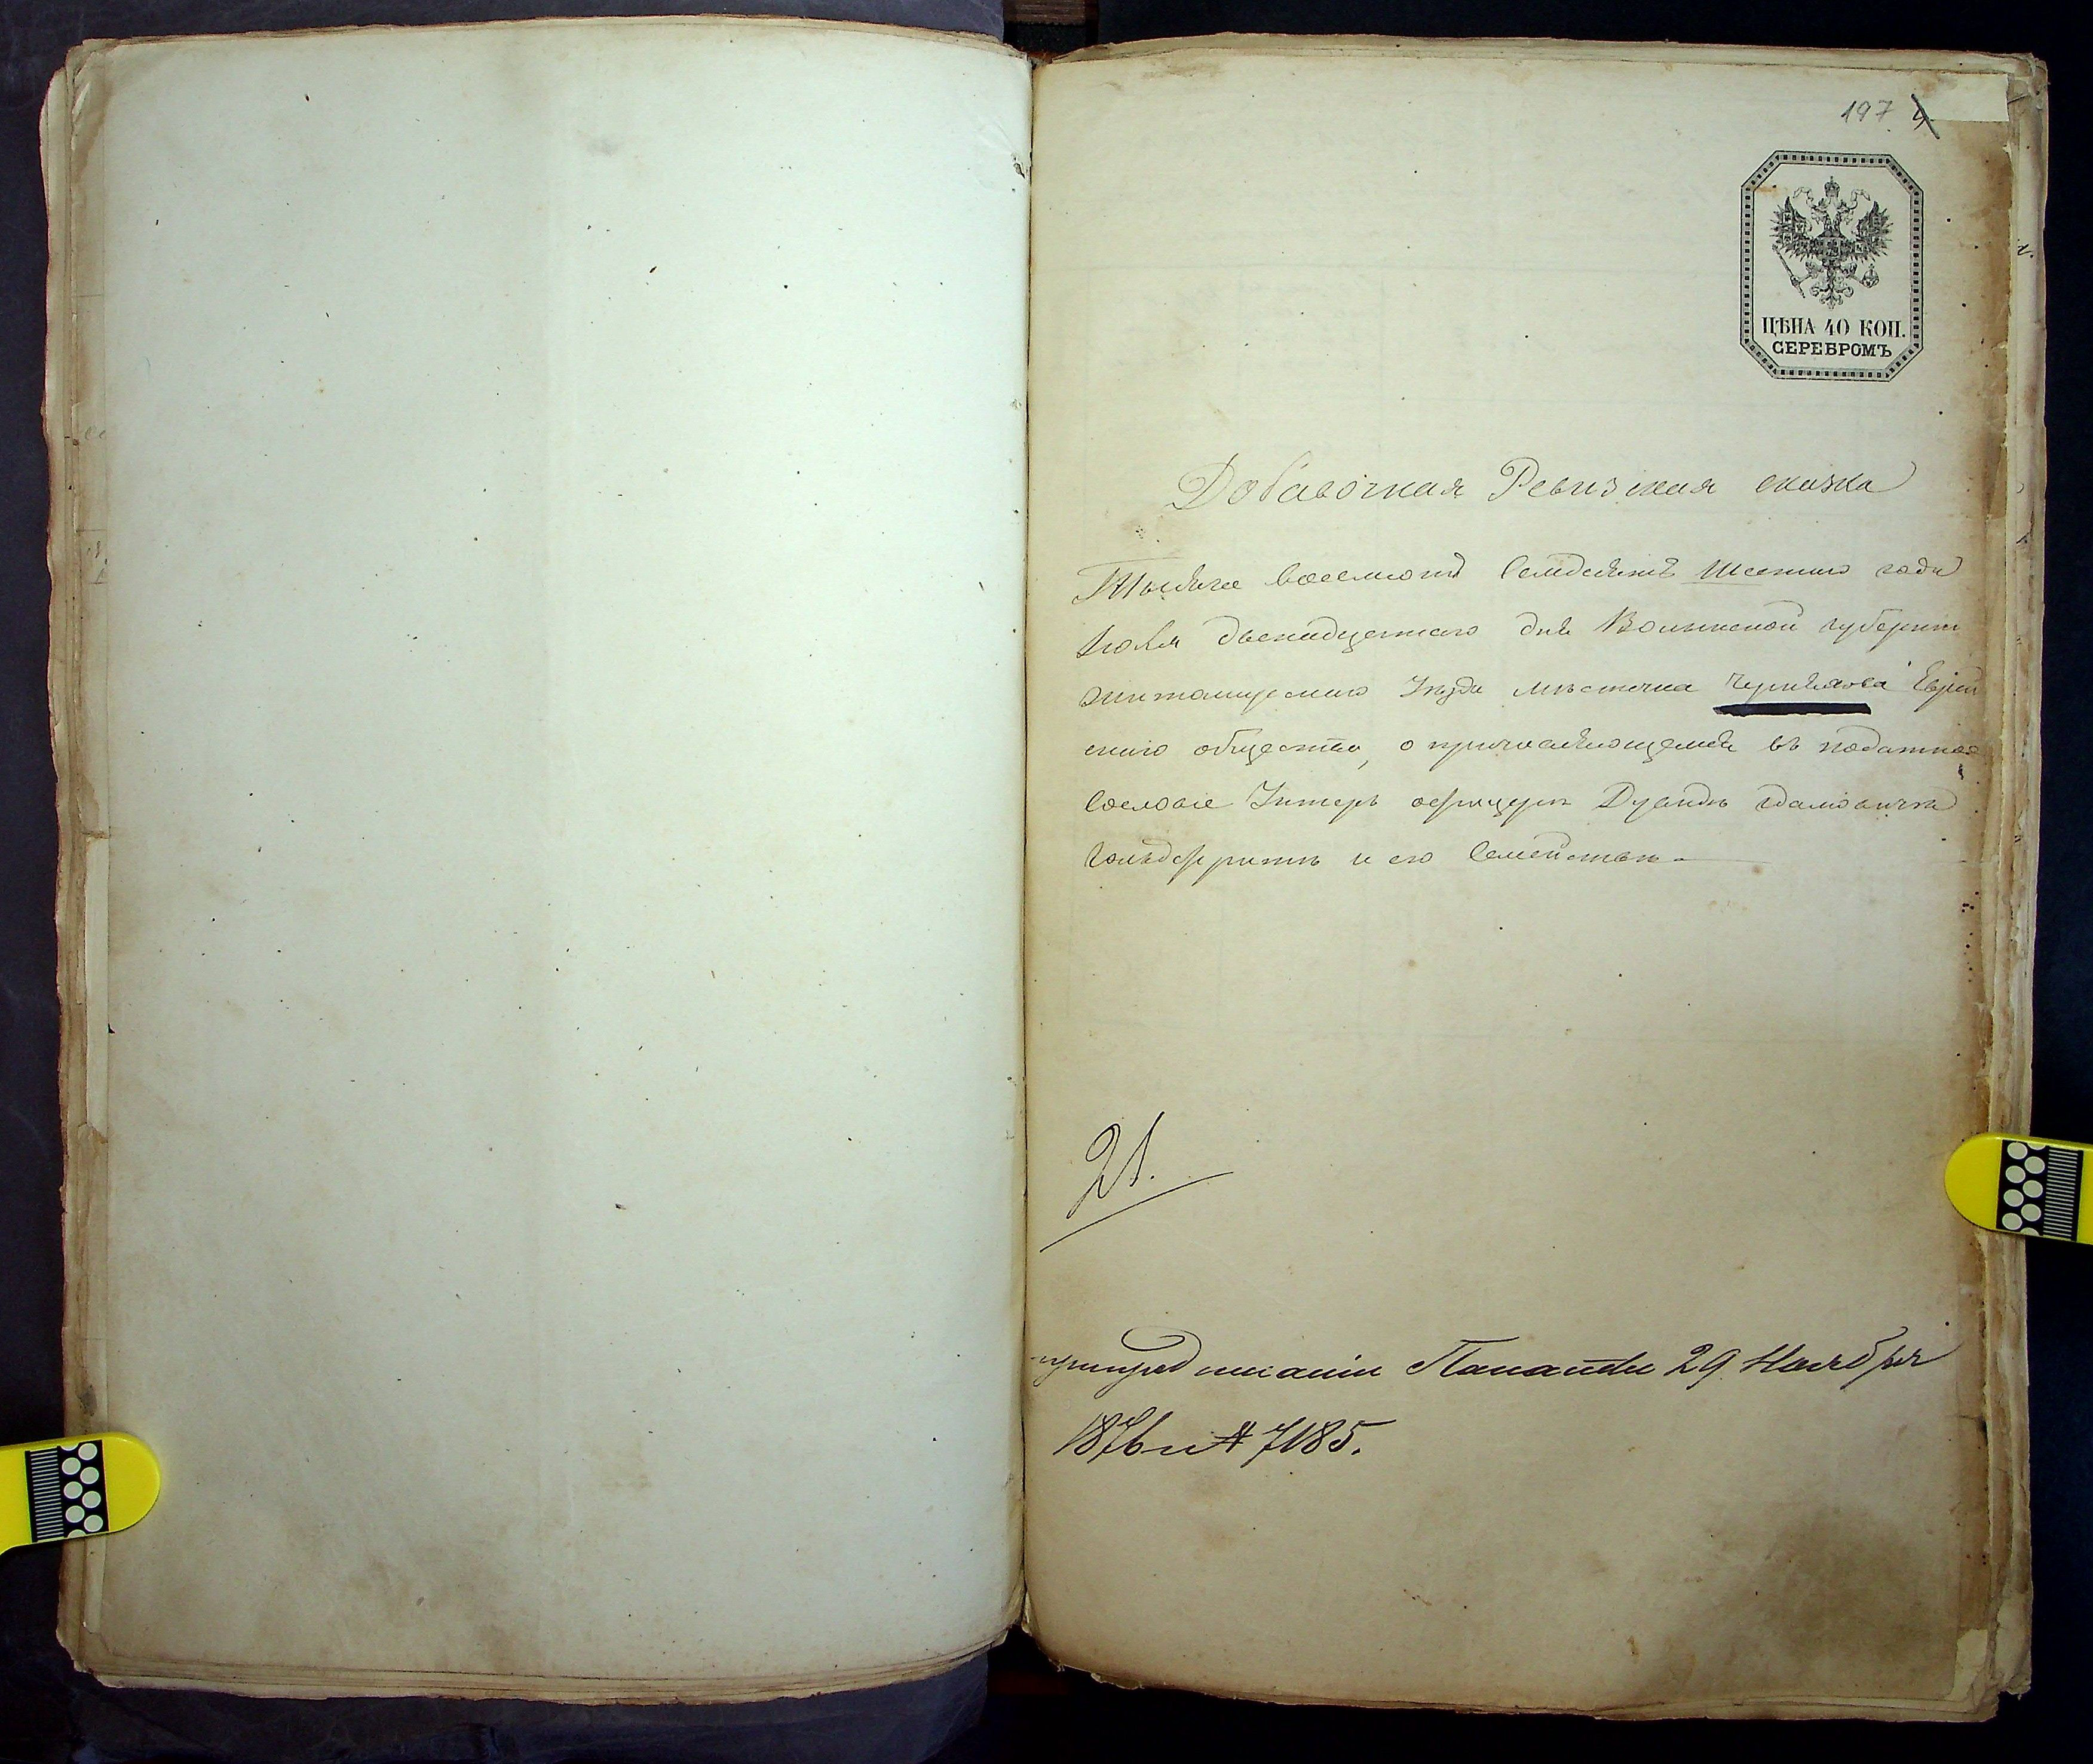 197 4
ЦѢНА 40 КОП.
СЕРЕБРОМЪ
Добавочная Ревизская сказка
Тысяча восемсотъ Семдесятъ Шестаго года
Іюля двенадцетаго дня Волынской губерніи
Житомирскаго Уезда мѣстечка Черняхова Еврей
скаго общества, о причисляющемся въ податное
Сословіе Унтеръ офицерѣ
и его Семействѣ
21.
29 Ноября
1876 г № 7185.